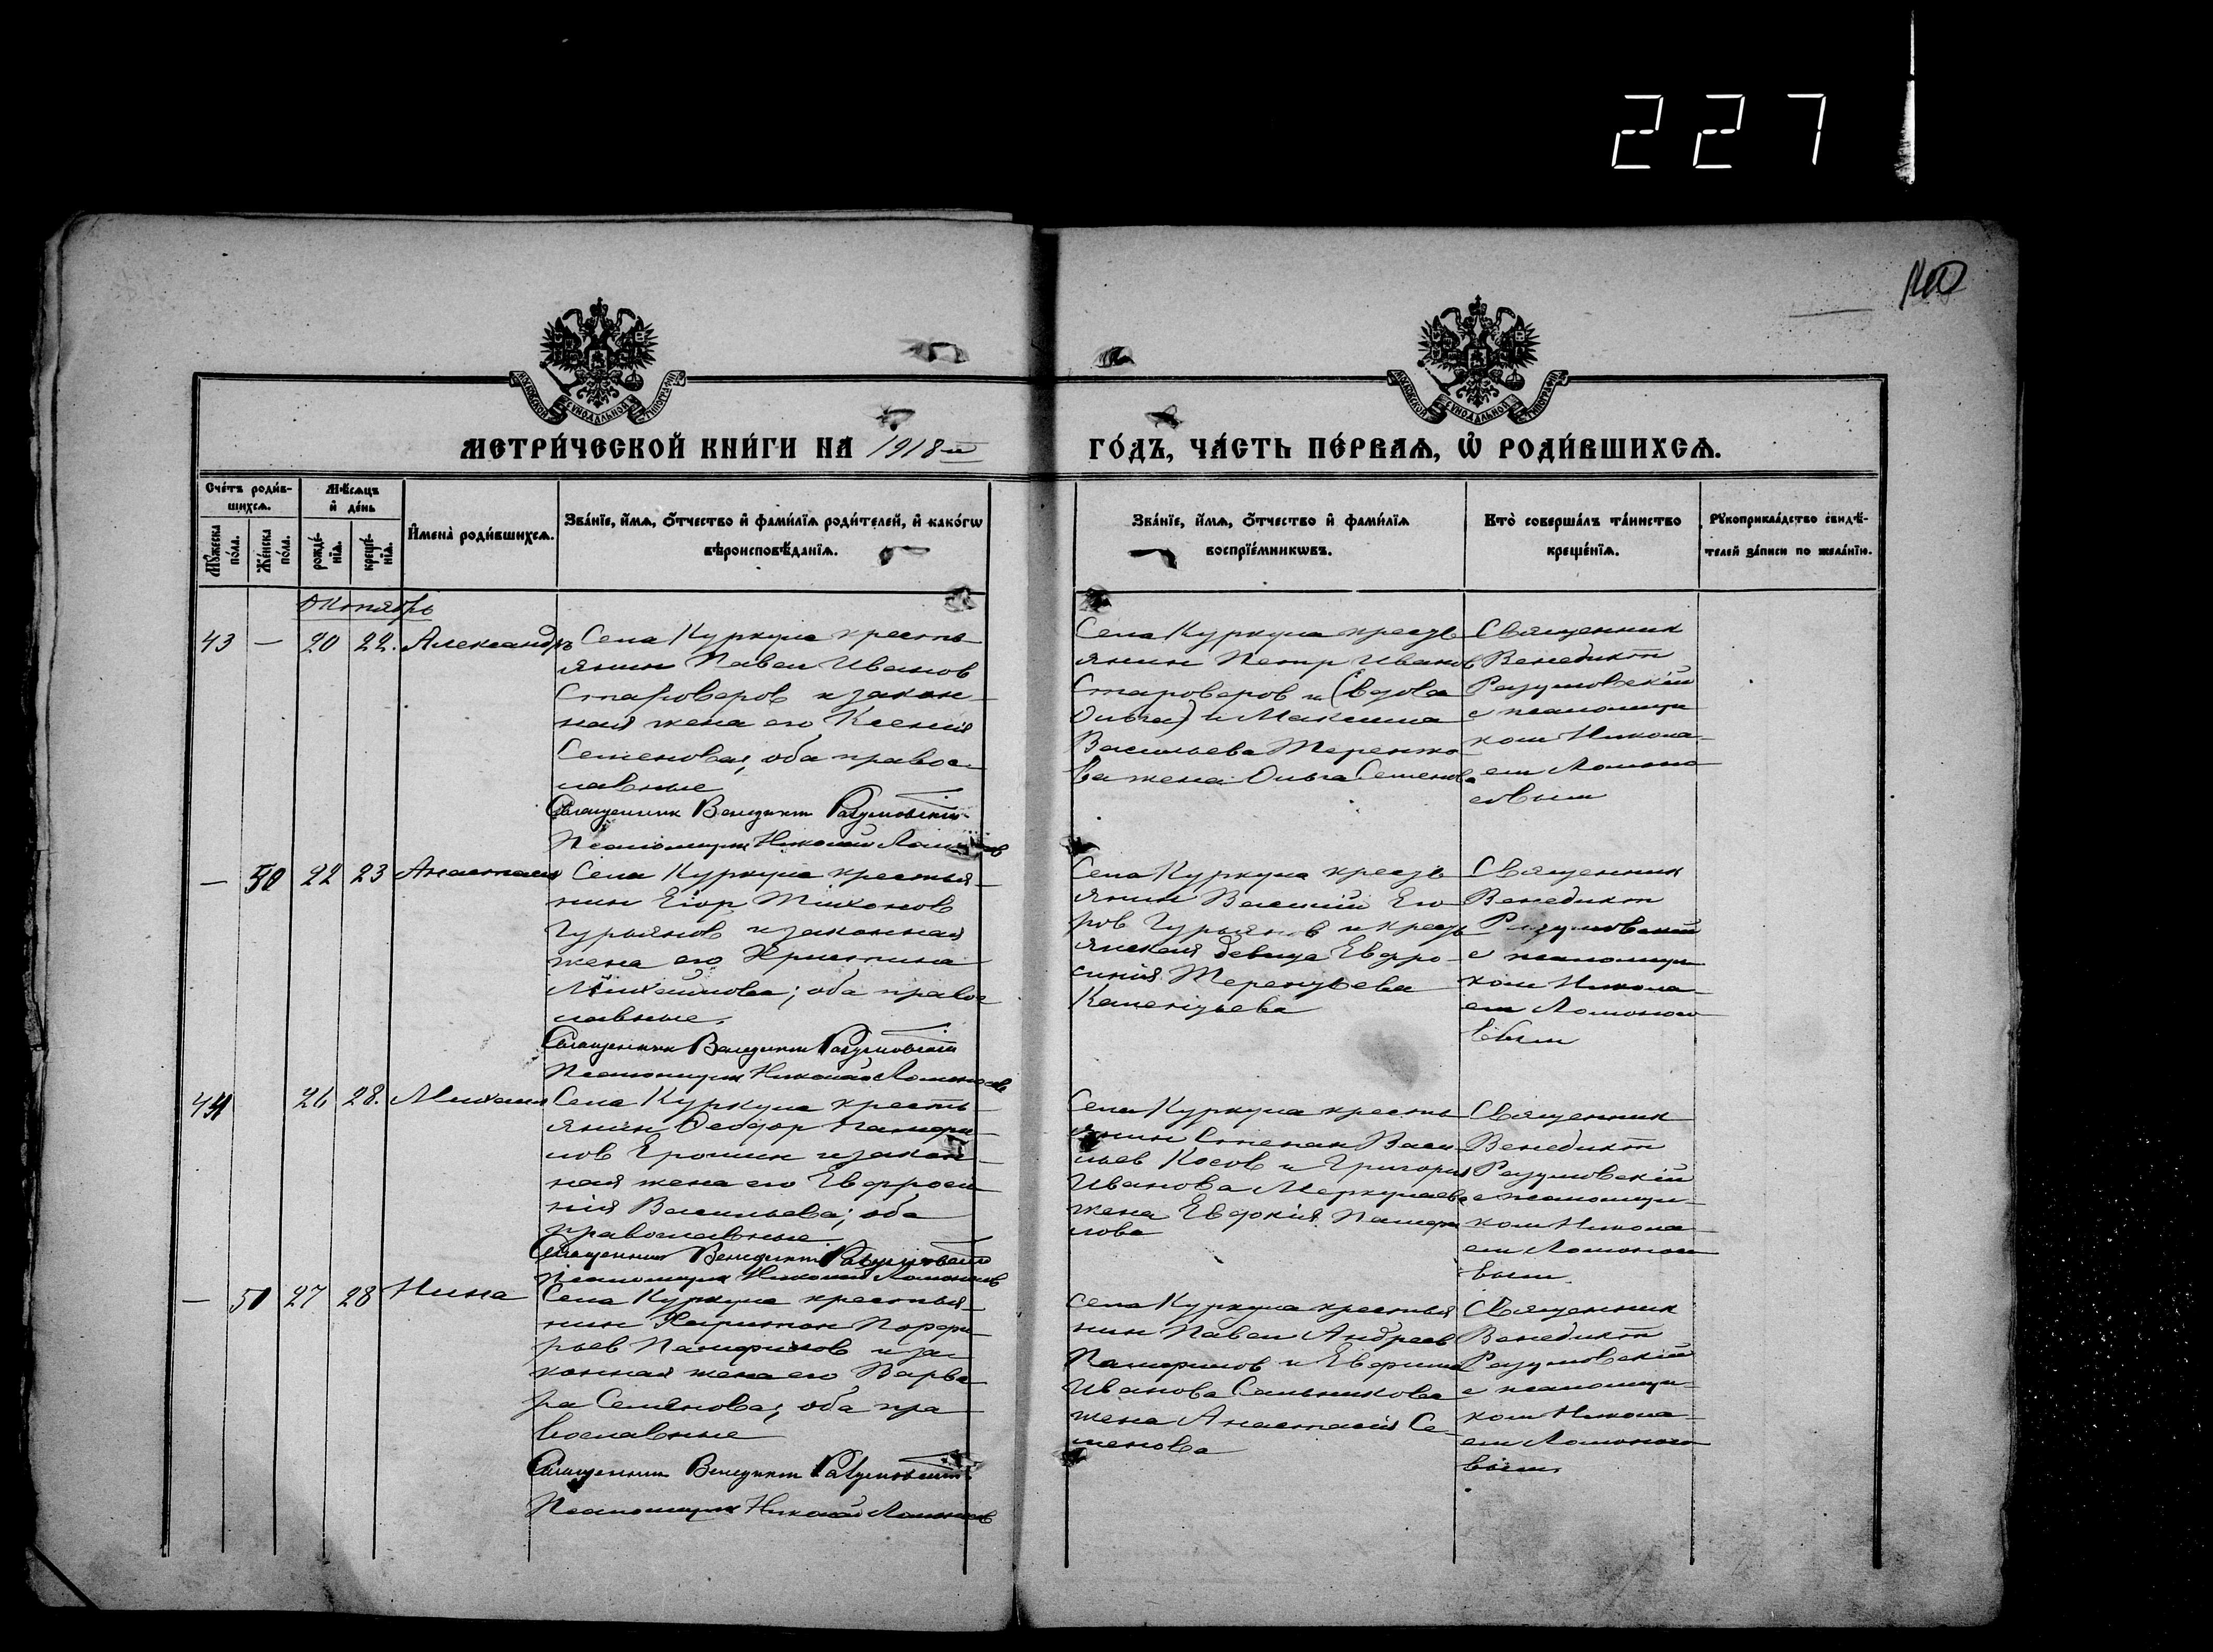 227
140
МОСКОВСКОЙ СѴНОДАЛЬНОЙ ТИПОГРАФІИ
МОСКОВСКОЙ СѴНОДАЛЬНОЙ ТИПОГРАФІИ
МЕТРИ́ЧЕСКОЙ КНИ́ГИ НА 1918-й ГО́ДЪ, ЧА́СТЬ ПЕ́РВАѦ, Ѡ҆ РОДИ́ВШИХСѦ.
Сче́тъ роди́в-
шихсѧ.
Мꙋ́жеска
по́ла.
Же́нска
по́ла.
Мѣ́сѧцъ
и҆ де́нь
рожде́-
нїѧ.
креще́-
нїѧ.
И҆мена̀ роди́вшихсѧ.
Зва́нїе, и҆́мѧ, ѻ҆́тчество и҆ фами́лїѧ роди́телей, и҆ како́гѡ
вѣроисповѣ́данїѧ.
Зва́нїе, и҆́мѧ, ѻ҆́тчество и҆ фами́лїѧ
воспрїе́мникѡвъ.
Кто̀ соверша́лъ та́инство
креще́нїѧ.
Рꙋкоприкла́дство свидѣ́-
телей за́писи по жела́нїю.
Октябрь
43 — 20 22. Александръ
Села Куркула кресть-
янин Павел Иванов
Староверов и закон-
ная жена его Ксения
Семенова; оба правос-
лавные
Священник Венедикт Разумовский
Псаломщик Николай Ломоносов
Села Куркула кресть
янин Петр Иванов
Староверов и (вдова
Ольга) и Максима
Васильева
жена Ольга Семенова
Священник
Венедикт
Разумовскій
с псаломщи
ком Никола-
ем Ломоно
совым
— 50 22 23 Анастасия
Села Куркула крестья-
нин Егор Тихонов
Гурьянов и законная
жена его Христина
Михайлова; оба правос
лавные.
Священник Венедикт Разумовский
Псаломщик Николай Ломоносов
Села Куркула кресть
янин Василий Его-
ров Гурьянов и кресть
янская девица Евфро-
синия Терентьева
Священник
Венедикт
Разумовский
с псаломщи
ком Никола-
ем Ломоносо
вым
44 26 28. Михаил
Села Куркула кресть-
янин Феодор Памфи-
лов Ерошин и закон-
ная жена его Евфроси-
нія Васильева; оба
православные
Священник Венедикт Разумовский
Псаломщик Николай Ломоносов
Села Куркула кресть
янин Степан Васи-
льев Косов и Григория
Иванова
жена Евдокія Памфи
лова
Священник
Венедикт
Разумовскій
с псаломщи-
ком Никола-
ем Ломоносо
вым.
— 51 27 28 Нина
Села Куркула крестья-
нин Харитон Порфи-
рьев Памфилов и за-
конная жена его Варва-
ра Семенова; оба пра-
вославные
Священник Венедикт Разумовский
Псаломщик Николай Ломоносов
Села Куркула крестья
нин Павел Андреев
Памфилов и Ефима
Иванова Сальникова
жена Анастасія Се-
менова
Священник
Венедикт
Разумовскій
с псаломщи-
ком Никола-
ем Ломоносо
вым.